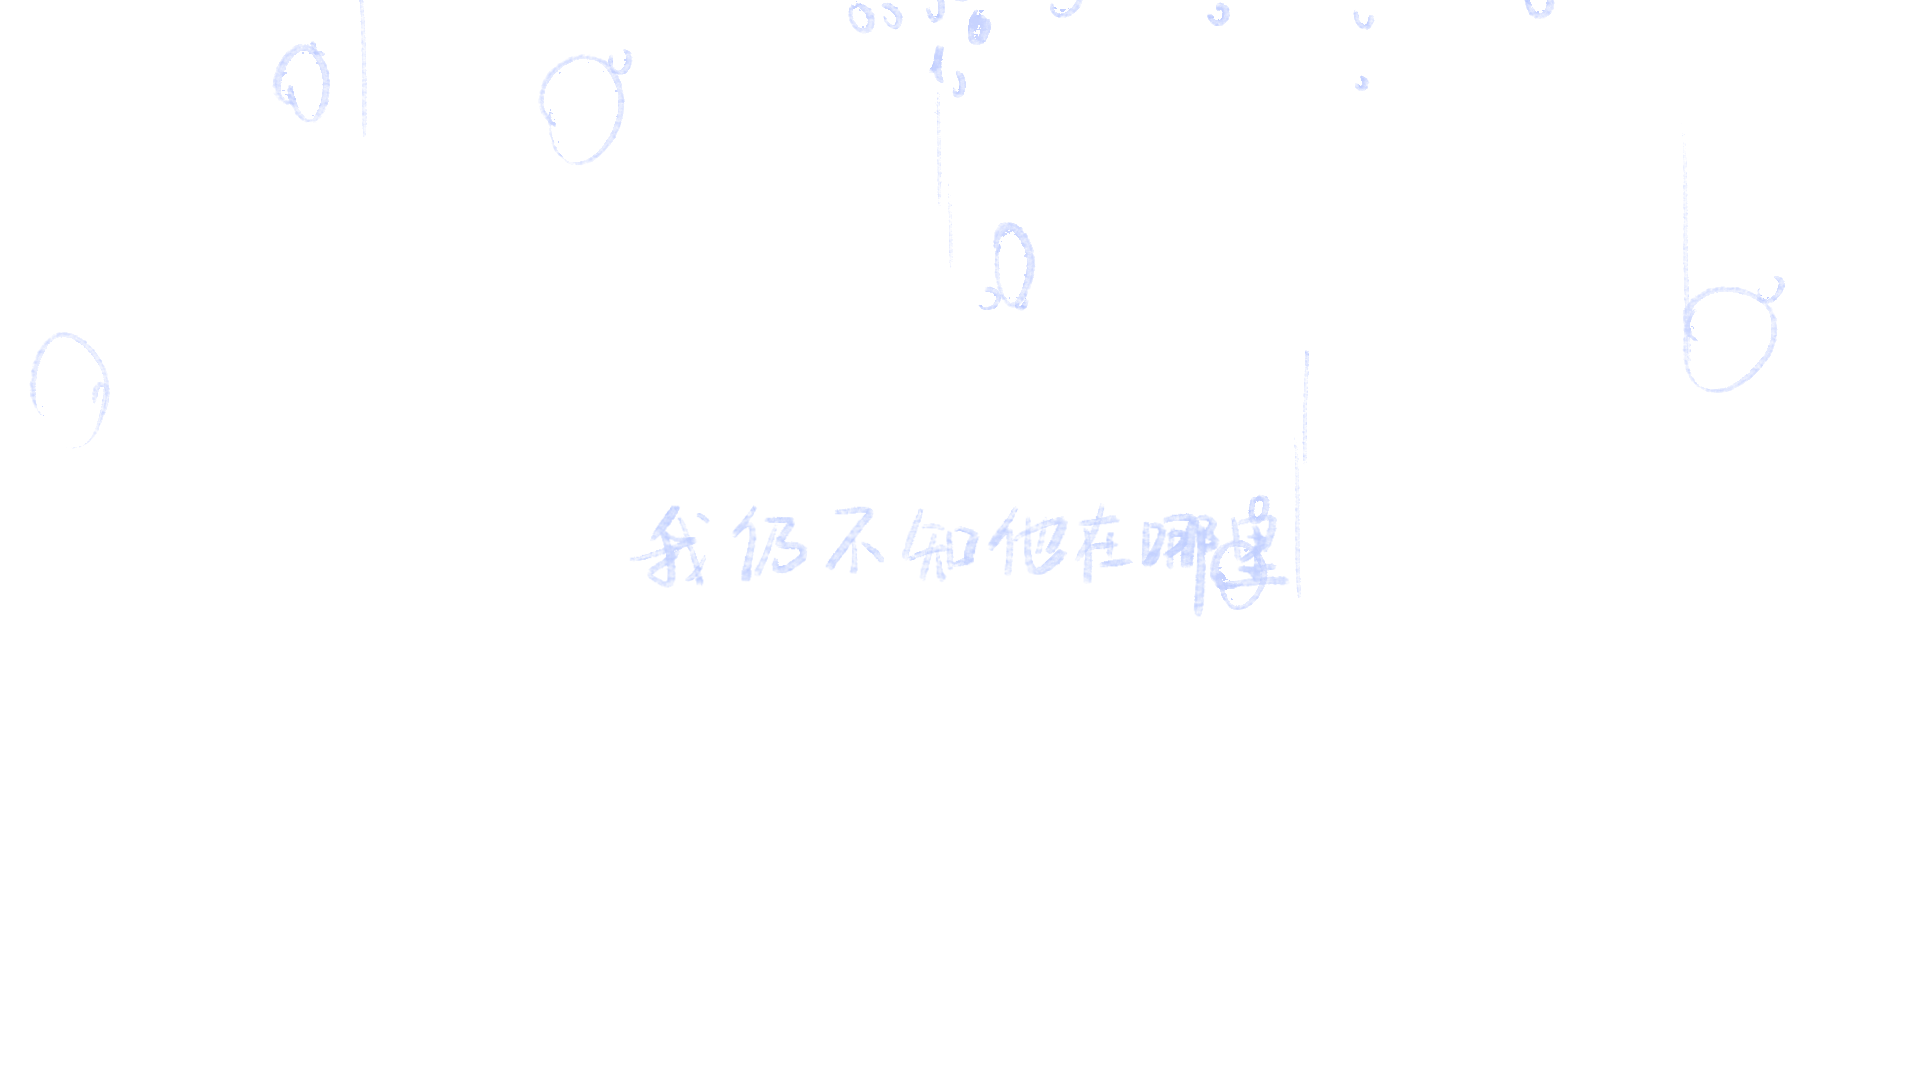 我仍不知他在哪里